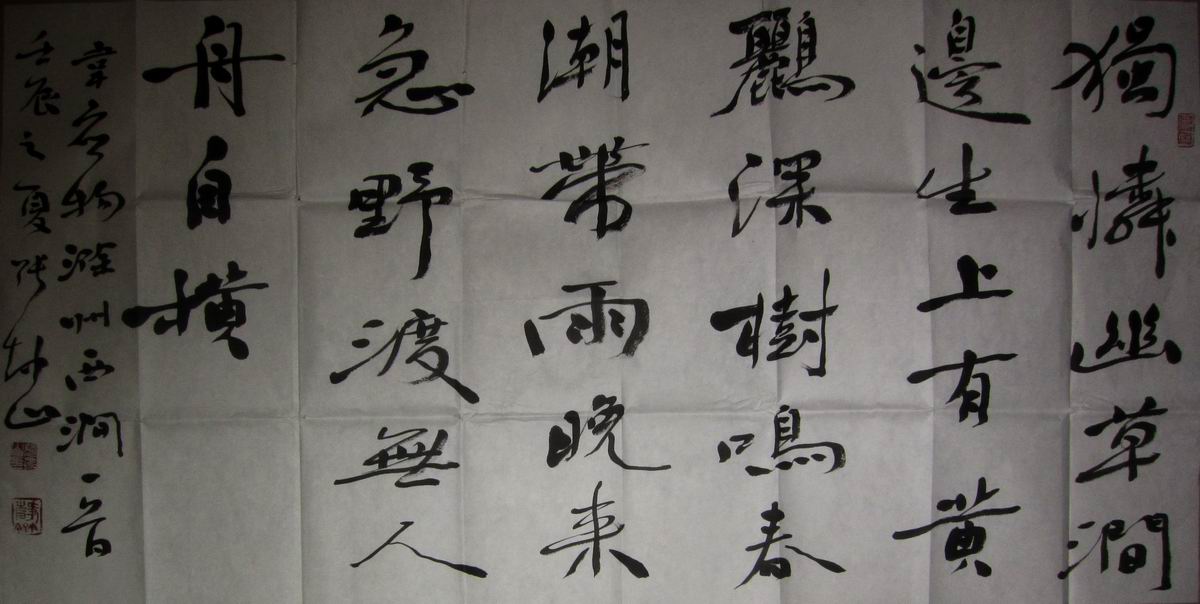 獨憐幽草澗
邊生上有黄
鸝深樹鳴春
潮帶雨晚来
急野渡無人
舟自横
韋应物滁州西澗一首
壬辰之夏张